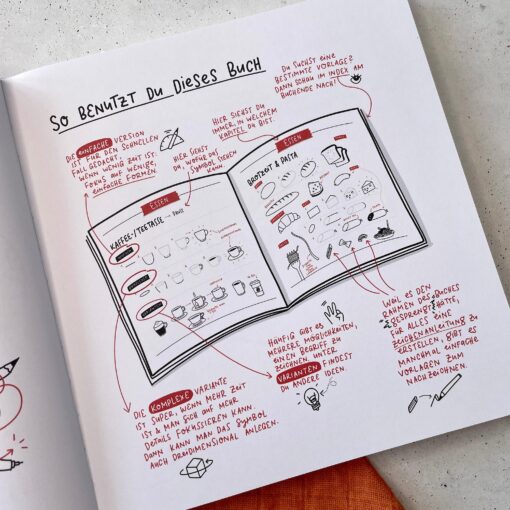 SO BENUTZT DU DIESES BUCH
DU SUCHST EINE
BESTIMMTE VORLAGE?
DANN SCHAU IM INDEX AM
BUCHENDE NACH!
DIE EINFACHE VERSION
IST FÜR DEN SCHNELLEN
FALL GEDACHT,
WENN WENIG ZEIT IST.
FOKUS AUF WENIGE,
EINFACHE FORMEN.
HIER SIEHST
DU, WOFÜR DAS
SYMBOL STEHEN
KANN
HIER SIEHST DU
IMMER, IN WELCHEM
KAPITEL DU BIST.
ESSEN
KAFFEE-/TEETASSE
ESSEN
BROTZEIT & PASTA
DIE KOMPLEXE VARIANTE
IST SUPER, WENN MEHR ZEIT
IST & MAN SICH AUF MEHR
DETAILS FOKUSSIEREN KANN.
DANN KANN MAN DAS SYMBOL
AUCH DREIDIMENSIONAL ANLEGEN.
HÄUFIG GIBT ES
MEHRERE MÖGLICHKEITEN,
EINEN BEGRIFF ZU
ZEICHNEN. UNTER
VARIANTEN FINDEST
DU ANDERE IDEEN.
WEIL ES DEN
RAHMEN DES BUCHES
GESPRENGT HÄTTE,
FÜR ALLES EINE
ZEICHENANLEITUNG ZU
ERSTELLEN, GIBT ES
MANCHMAL EINFACHE
VORLAGEN ZUM
NACHZEICHNEN.